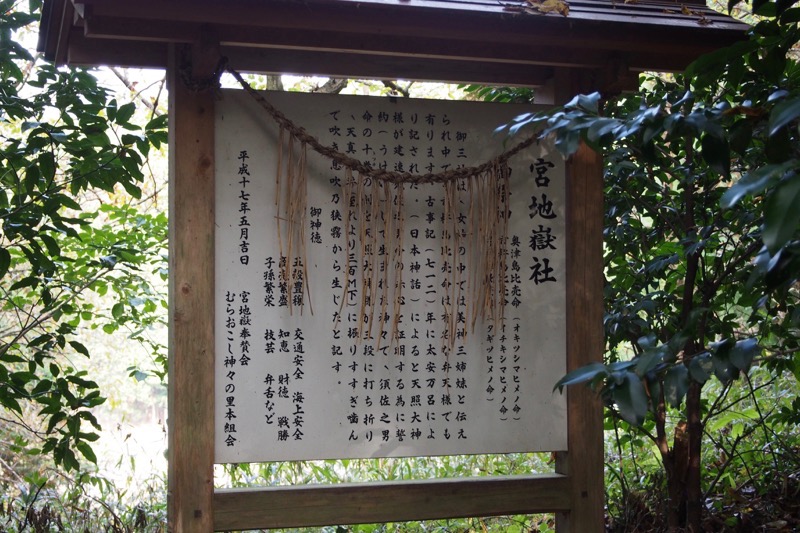 宮地嶽社
奥津島比売命(オキツシマヒメノ命)
島比売命(イチキシマヒメノ命)
(タギツヒメノ命)
御三 は、女 の中では美神三姉妹と伝え
られ申 比売命は 弁天様でも
有ります。古事記(七一二)年に太安万呂によ
り記された。(日本神話)によると天照大神
様が建速 の 心を証明する為に誓
約(うけ して生まれた神々で、須佐之男
命の十 天照大神 が三段に打ち折り
、天真 れより三百M下)に振りすすぎ噛ん
で吹き息吹乃狭霧から生じたと記す。
御神徳
五穀豊穣 交通安全 海上安全
商売繁盛 知恵 財徳 戦勝
子孫繁栄 技芸 弁舌など
平成十七年五月吉日
宮地嶽奉賛会
むらおこし神々の里本組会